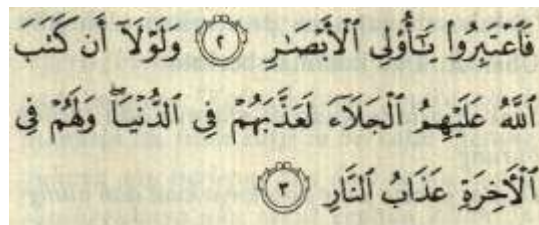 فَٱعْتَبِرُوا۟ يَـٰٓأُو۟لِى ٱلْأَبْصَـٰرِ ٢ وَلَوْلَآ أَن كَتَبَ
ٱللَّهُ عَلَيْهِمُ ٱلْجَلَآءَ لَعَذَّبَهُمْ فِى ٱلدُّنْيَا ۖ وَلَهُمْ فِى
ٱلْـَٔاخِرَةِ عَذَابُ ٱلنَّارِ ٣